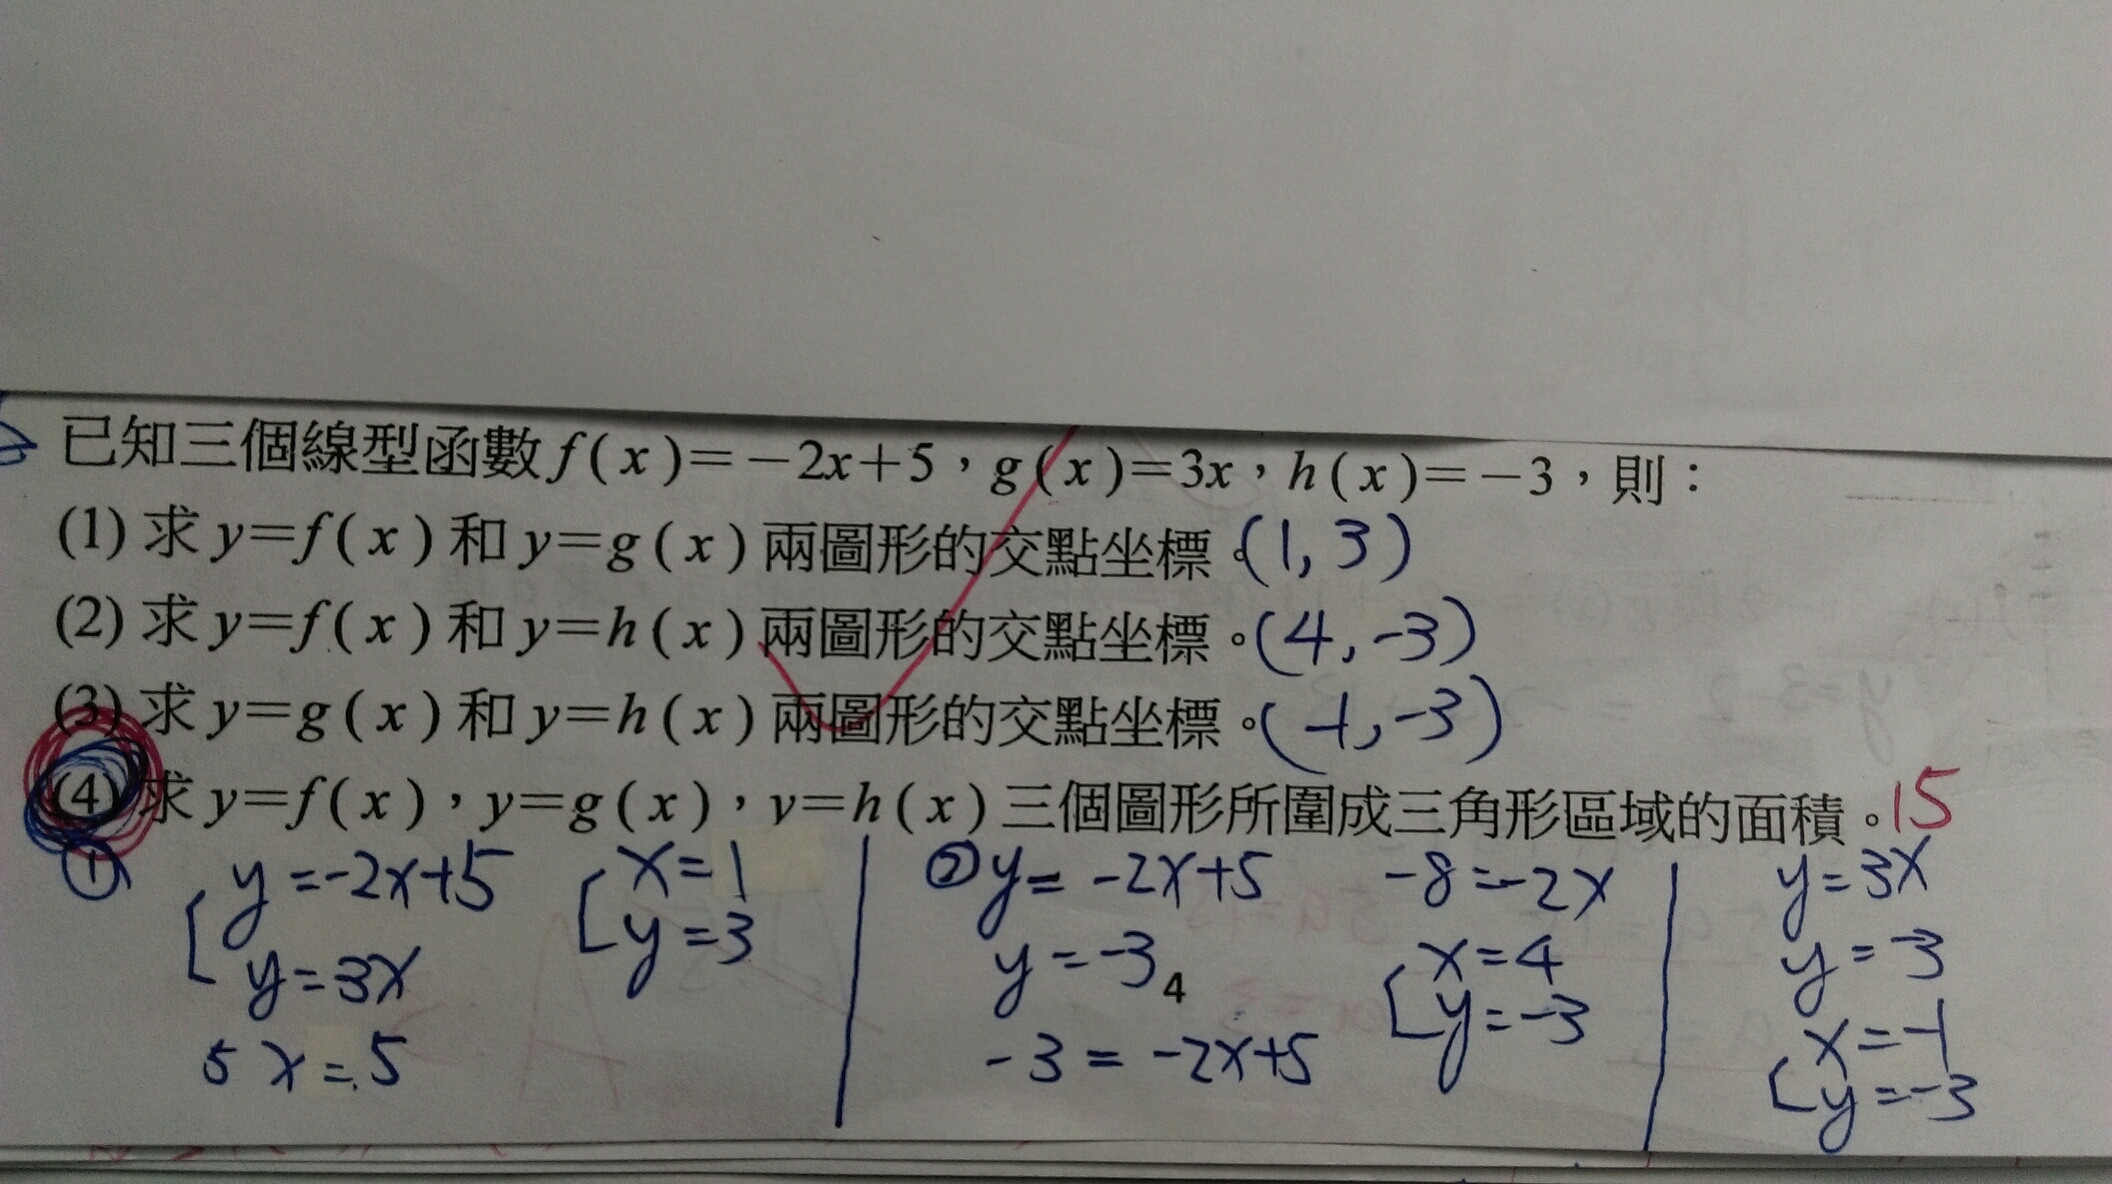 已知三個線型函數f(x)=-2x+5，g(x)=3x，h(x)=-3，則：
(1) 求y=f(x)和y=g(x)兩圖形的交點坐標。(1, 3)
(2) 求y=f(x)和y=h(x)兩圖形的交點坐標。(4, -3)
(3) 求y=g(x)和y=h(x)兩圖形的交點坐標。(-1, -3)
(4) 求y=f(x)，y=g(x)，y=h(x)三個圖形所圍成三角形區域的面積。15
①
y=-2x+5
y=3x
5x=5
x=1
y=3
② y=-2x+5
y=-3
4
-3=-2x+5
-8=-2x
x=4
y=-3
y=3x
y=-3
x=-1
y=-3